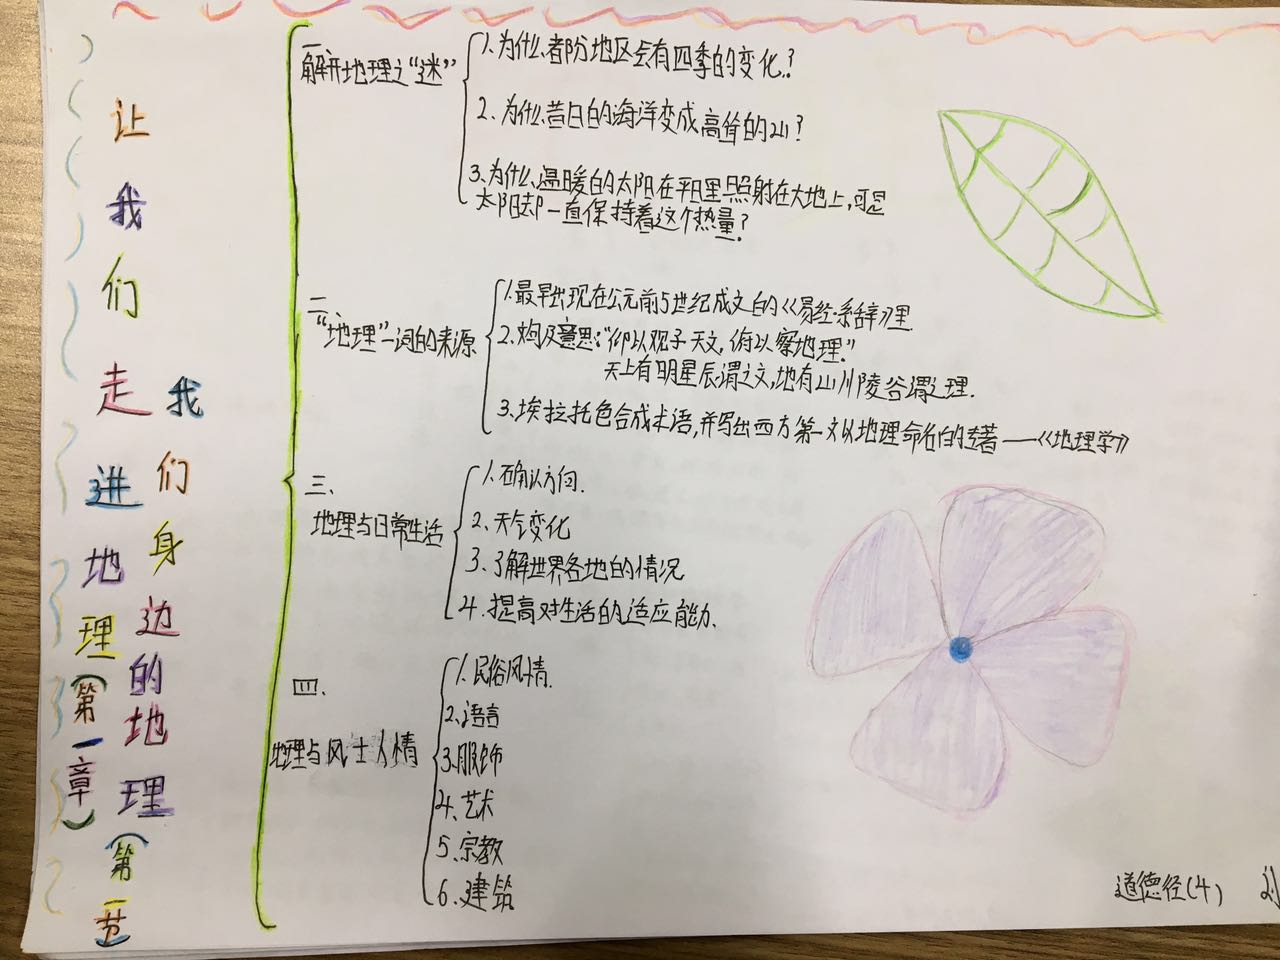 让我们走进地理(第一章)
我们身边的地理(第一节)
一、
解开地理之“迷”
1.为什么都分地区会有四季的变化？
2.为什么昔日的海洋变成高耸的山？
3.为什么温暖的太阳在平日里照射在大地上,可是
太阳却一直保持着这个热量？
二、
“地理”一词的来源
1.最早出现在公元前5世纪成文的《易经·系辞》里.
2.及意思:“仰以观于天文,俯以察地理.”
天上有明星辰谓之文,地有山川陵谷谓之理.
3.埃拉托色合成术语,并写出西方第一文以地理命名的专著——《地理学》
三、
地理与日常生活
1.确认方向.
2.天气变化
3.了解世界各地的情况
4.提高对生活的适应能力.
四、
地理与风士人情
1.民俗风情.
2.语言
3.服饰
4.艺术
5.宗教
6.建筑
道德经(4)